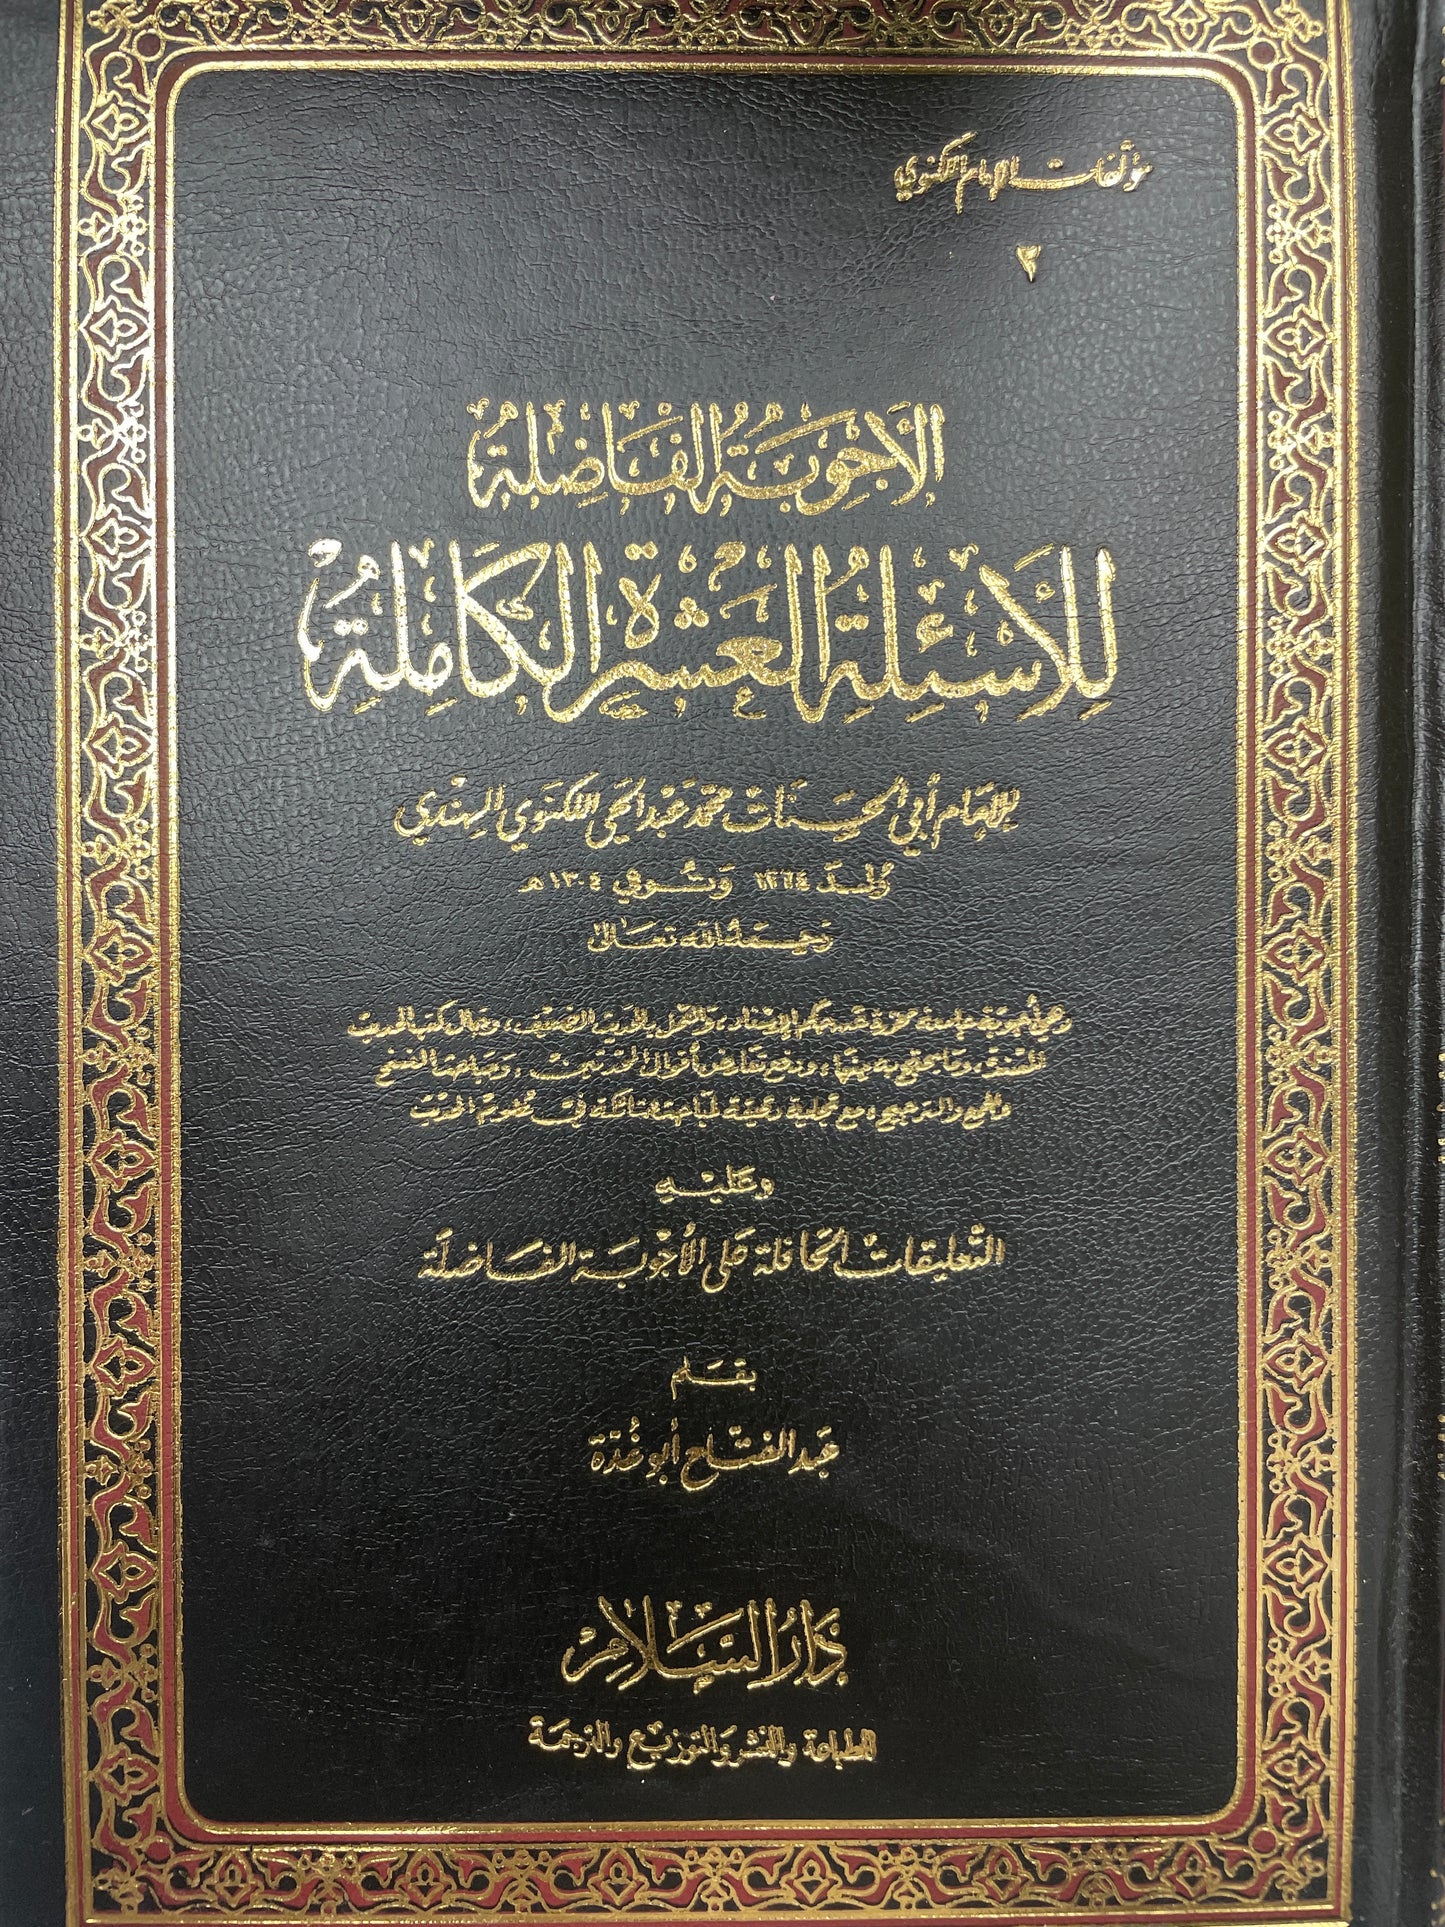 مؤلفات الإمام اللكنوي
٢
الأَجْوِبَةُ الفَاضِلَةُ
لِلأَسْئِلَةِ العَشْرَةِ الكَامِلَةِ
لِلإِمَام أبي الحَسَنَات مُحَمَّد عَبْد الحَيّ اللكنَوي الهِنْدي
وُلِدَ ١٢٦٤ وَتُوفي ١٣٠٤ هـ
رَحِمَهُ اللّه تعَالىٰ
وهي أجوبة جامعة محررة عن مهام الإسناد، والعمل بالحديث الضعيف، وحال كتب الحديث
المسندة، وما يحتج به منها، ودفع تعارض أقوال المحدثين، ومباحث النسخ
والجمع والترجيح، مع تجلية دقيقة لمباحث شائكة في علوم الحديث
وعَليْهِ
التعليقات الحَافلة عَلى الأجْوبَة الفَاضلَة
بقَلم
عَبد الفتّاح أبو غُدّة
دَارُ السَّلَامِ
للطباعة والنشر والتوزيع والترجمة